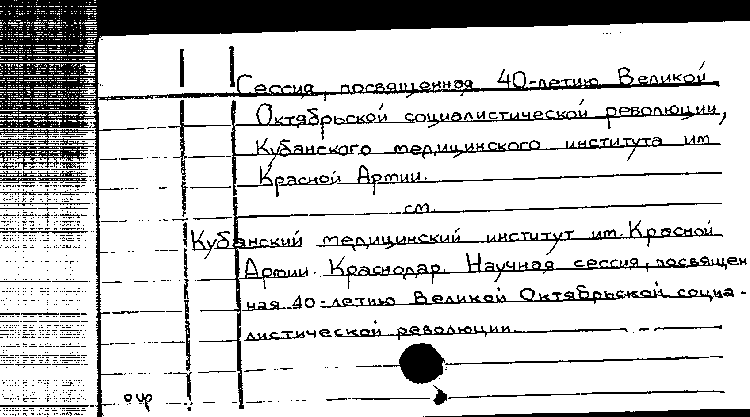 Сессия, посвященная 40-летию Великой
Октябрьской социалистической революции,
Кубанского медицинского института им
Красной Армии.
см.
Кубанский медицинский институт им. Красной
Армии. Краснодар. Научная сессия, посвящен
ная 40-летию Великой Октябрьской социа-
листической революции.